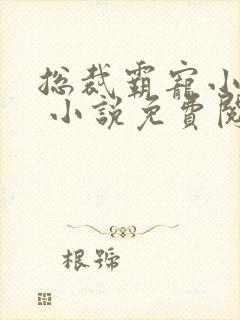 總裁霸寵小
小說免費閱
根號